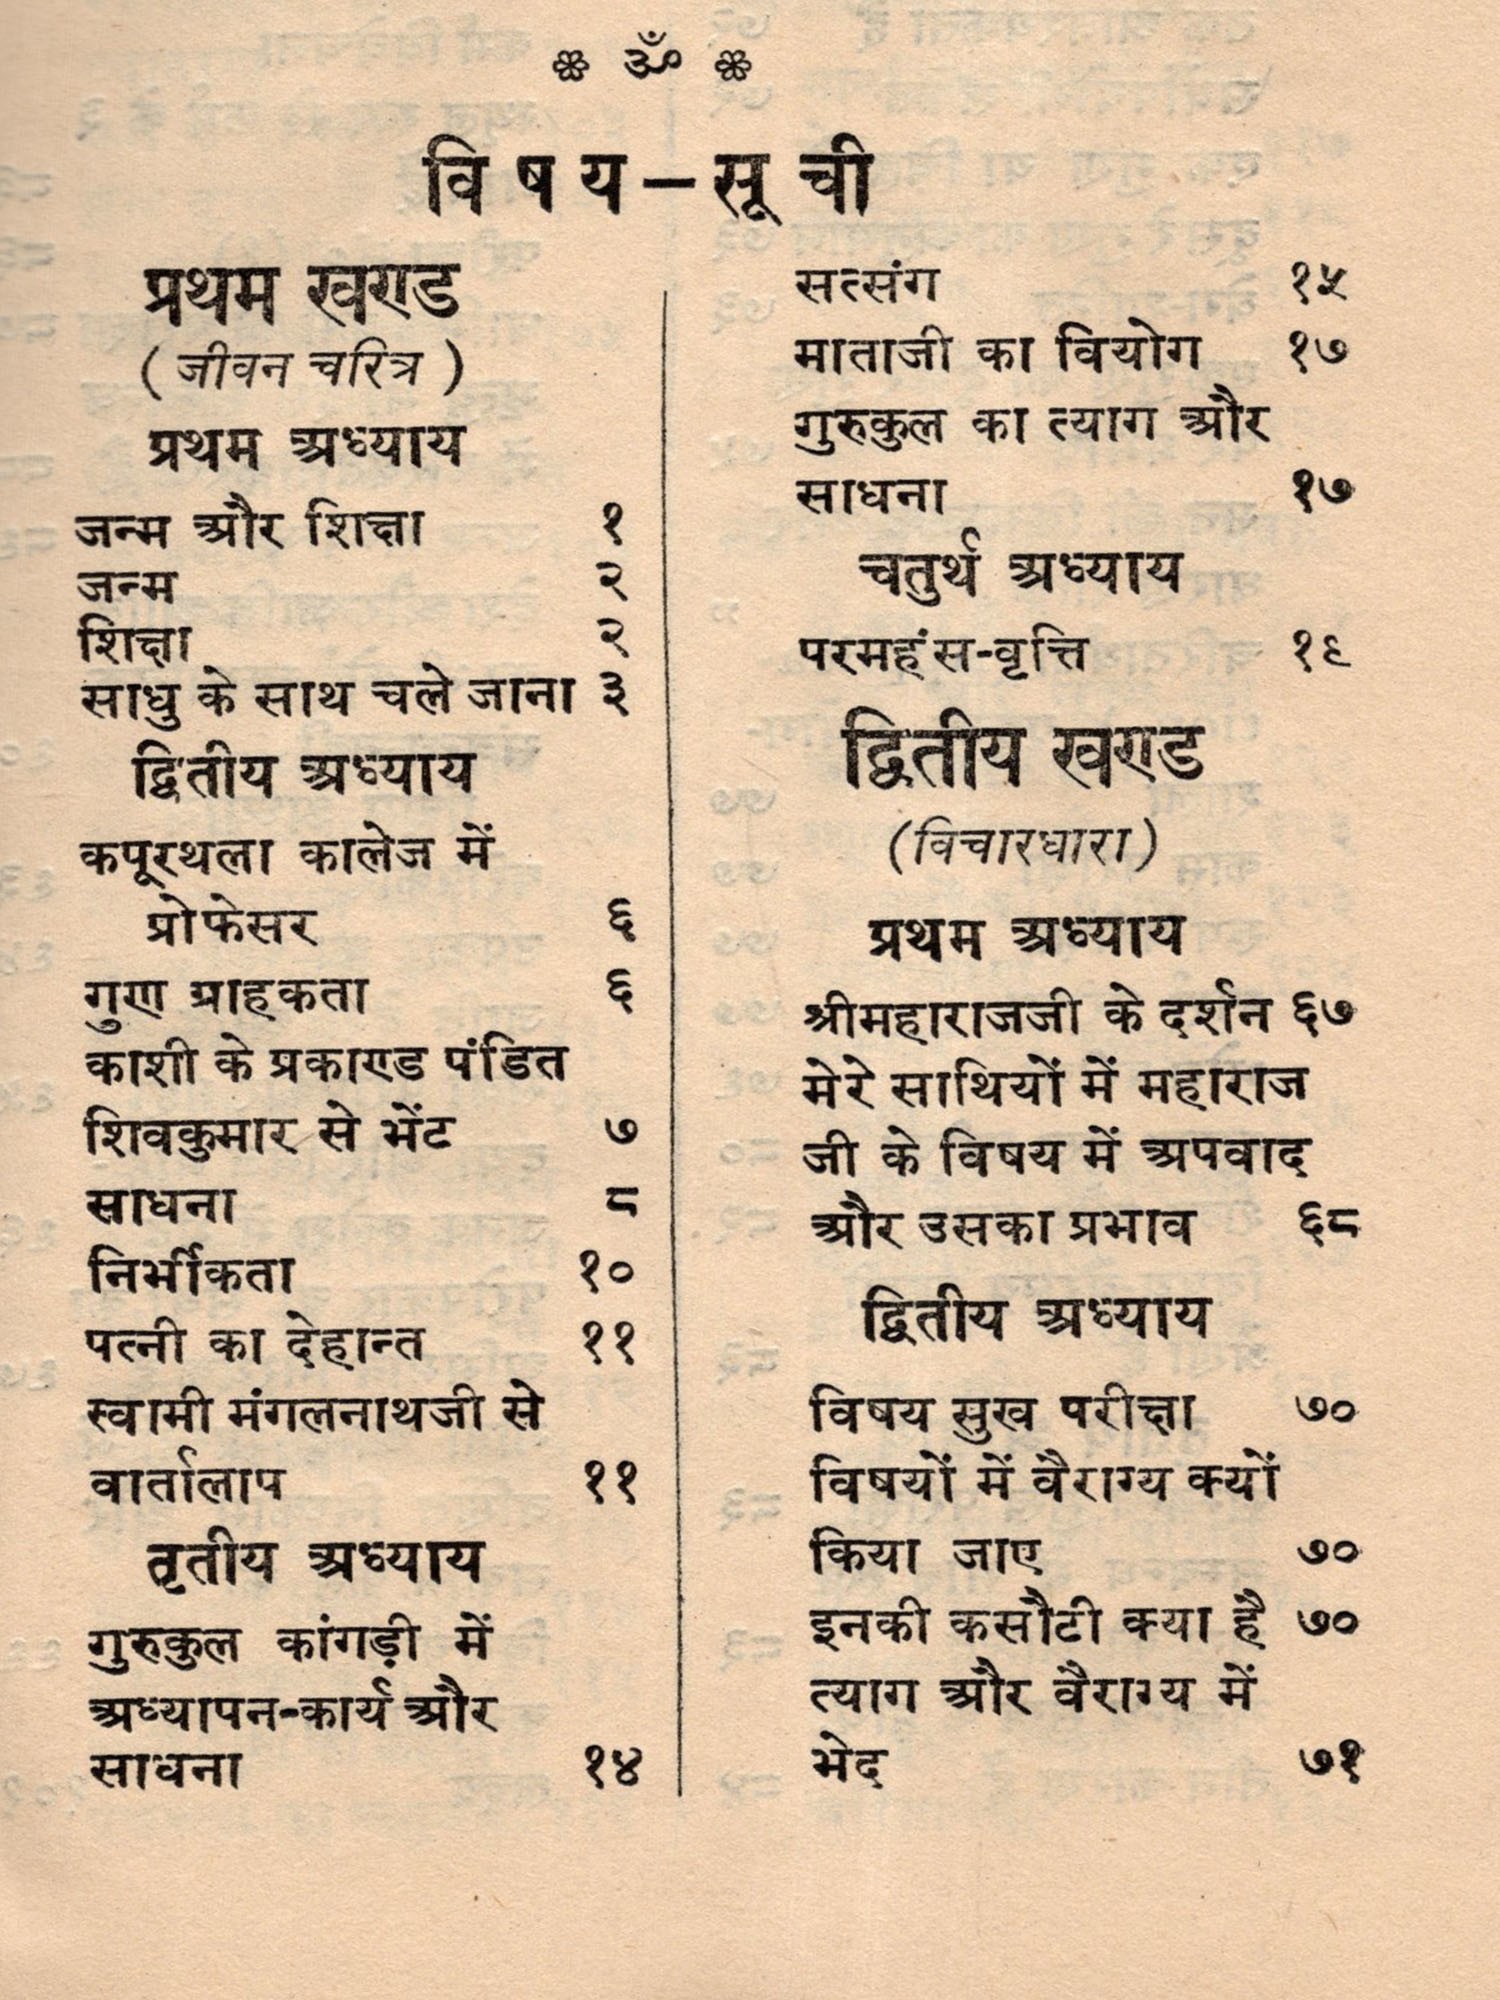 ❀ ॐ ❀
विषय–सूची
प्रथम खण्ड
( जीवन चरित्र )
प्रथम अध्याय
जन्म और शिक्षा १
जन्म २
शिक्षा २
साधु के साथ चले जाना ३
द्वितीय अध्याय
कपूरथला कालेज में
प्रोफेसर ६
गुण ग्राहकता ६
काशी के प्रकाण्ड पंडित
शिवकुमार से भेंट ७
साधना ८
निर्भीकता १०
पत्नी का देहान्त ११
स्वामी मंगलनाथजी से
वार्तालाप ११
तृतीय अध्याय
गुरुकुल कांगड़ी में
अध्यापन-कार्य और
साधना १४
सत्संग १५
माताजी का वियोग १७
गुरुकुल का त्याग और
साधना १७
चतुर्थ अध्याय
परमहंस-वृत्ति १९
द्वितीय खण्ड
(विचारधारा)
प्रथम अध्याय
श्रीमहाराजजी के दर्शन ६७
मेरे साथियों में महाराज
जी के विषय में अपवाद
और उसका प्रभाव ६८
द्वितीय अध्याय
विषय सुख परीक्षा ७०
विषयों में वैराग्य क्यों
किया जाए ७०
इनकी कसौटी क्या है ७०
त्याग और वैराग्य में
भेद ७१